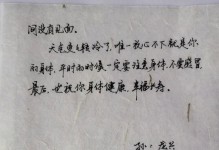 间没有见面。
天气变冷了,唯一放心不下就是你
的身体,平时的时候一定要注意身体,不要感冒
最后,也祝你身体健康,幸福
孙: